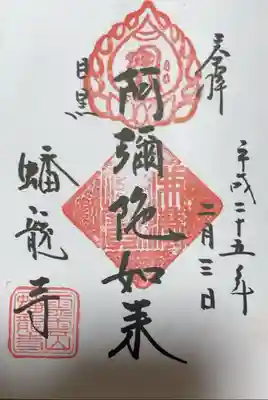 奉拝
平成二十五年
二月三日
阿彌陀如来
目黒
蟠龍寺